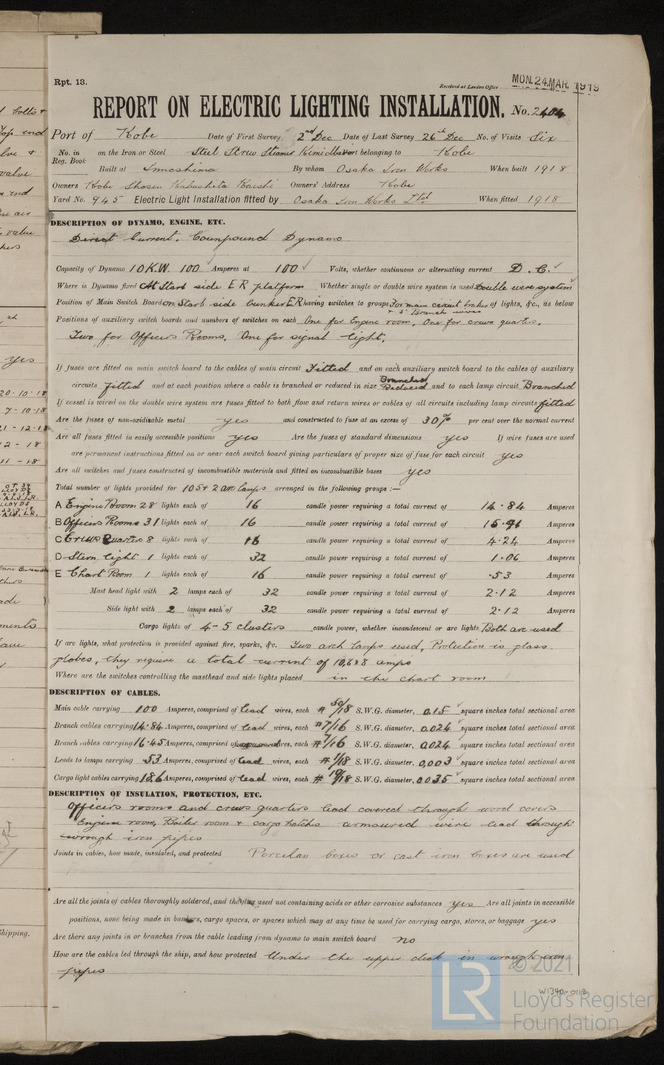 Rpt. 13.
Received at London Office
MON. 24 MAR. 1919
REPORT ON ELECTRIC LIGHTING INSTALLATION. No. 2404
Port of Kobe Date of First Survey 2nd Dec Date of Last Survey 26th Dec No. of Visits Six
No. in Reg. Book on the Iron or Steel Steel Screw Steamer Port belonging to Kobe
Built at Innoshima By whom Osaka Iron Works When built 1918
Owners Kobe Shosen Kaishi Owners' Address Kobe
Yard No. 945 Electric Light Installation fitted by Osaka Iron Works Ltd When fitted 1918
DESCRIPTION OF DYNAMO, ENGINE, ETC.
Direct Current, Compound Dynamo
Capacity of Dynamo 10 K.W. 100 Amperes at 100 Volts, whether continuous or alternating current D.C.
Where is Dynamo fixed At Star side E R platform Whether single or double wire system is used Double wire system
Position of Main Switch Board on Star side bunker E R having switches to groups For main circuit of lights, &c., as below
& 5 Branch
Positions of auxiliary switch boards and numbers of switches on each One for Engine room, One for crews quarter,
Two for Officers Rooms, One for signal light,
If fuses are fitted on main switch board to the cables of main circuit Fitted and on each auxiliary switch board to the cables of auxiliary
circuits fitted and at each position where a cable is branched or reduced in size Branched and to each lamp circuit Branched
If vessel is wired on the double wire system are fuses fitted to both flow and return wires or cables of all circuits including lamp circuits fitted
Are the fuses of non-oxidizable metal yes and constructed to fuse at an excess of 30% per cent over the normal current
Are all fuses fitted in easily accessible positions yes Are the fuses of standard dimensions yes If wire fuses are used
are permanent instructions fitted on or near each switch board giving particulars of proper size of fuse for each circuit yes
Are all switches and fuses constructed of incombustible materials and fitted on incombustible bases yes
Total number of lights provided for 105 & 2 arc lamps arranged in the following groups :—
A Engine Room 28 lights each of 16 candle power requiring a total current of 14.84 Amperes
B Officers Rooms 31 lights each of 16 candle power requiring a total current of Amperes
C Crews Quarter 8 lights each of 16 candle power requiring a total current of 4.24 Amperes
D Stern light 1 lights each of 32 candle power requiring a total current of 1.06 Amperes
E Chart Room 1 lights each of 16 candle power requiring a total current of .53 Amperes
Mast head light with 2 lamps each of 32 candle power requiring a total current of 2.12 Amperes
Side light with 2 lamps each of 32 candle power requiring a total current of 2.12 Amperes
Cargo lights of 4-5 clusters candle power, whether incandescent or arc lights Both are used
If arc lights, what protection is provided against fire, sparks, &c. Two arch lamps used, Protection is glass
globes, they require a total current of amps
Where are the switches controlling the masthead and side lights placed in the chart room
DESCRIPTION OF CABLES.
Main cable carrying 100 Amperes, comprised of lead wires, each # S.W.G. diameter, 0.15 square inches total sectional area
Branch cables carrying 14.84 Amperes, comprised of lead wires, each # 7/16 S.W.G. diameter, 0.024 square inches total sectional area
Branch cables carrying 16.45 Amperes, comprised of wires, each # 7/16 S.W.G. diameter, 0.024 square inches total sectional area
Leads to lamps carrying .53 Amperes, comprised of lead wires, each # 1/18 S.W.G. diameter, 0.003 square inches total sectional area
Cargo light cables carrying 18.6 Amperes, comprised of lead wires, each # S.W.G. diameter, 0.035 square inches total sectional area
DESCRIPTION OF INSULATION, PROTECTION, ETC.
Officers rooms and crews quarters lead covered through wood covers
Engine room, Boiler room & cargo hatchs armoured wire lead through
wrough iron pipes
Joints in cables, how made, insulated, and protected Porcelan boxes or cast iron boxes are used
Are all the joints of cables thoroughly soldered, and the flux used not containing acids or other corrosive substances yes Are all joints in accessible
positions, none being made in bunkers, cargo spaces, or spaces which may at any time be used for carrying cargo, stores, or baggage yes
Are there any joints in or branches from the cable leading from dynamo to main switch board no
How are the cables led through the ship, and how protected Under the upper deck in wrough iron
pipes
© 2021
LR Lloyd's Register
Foundation
W1340-0112